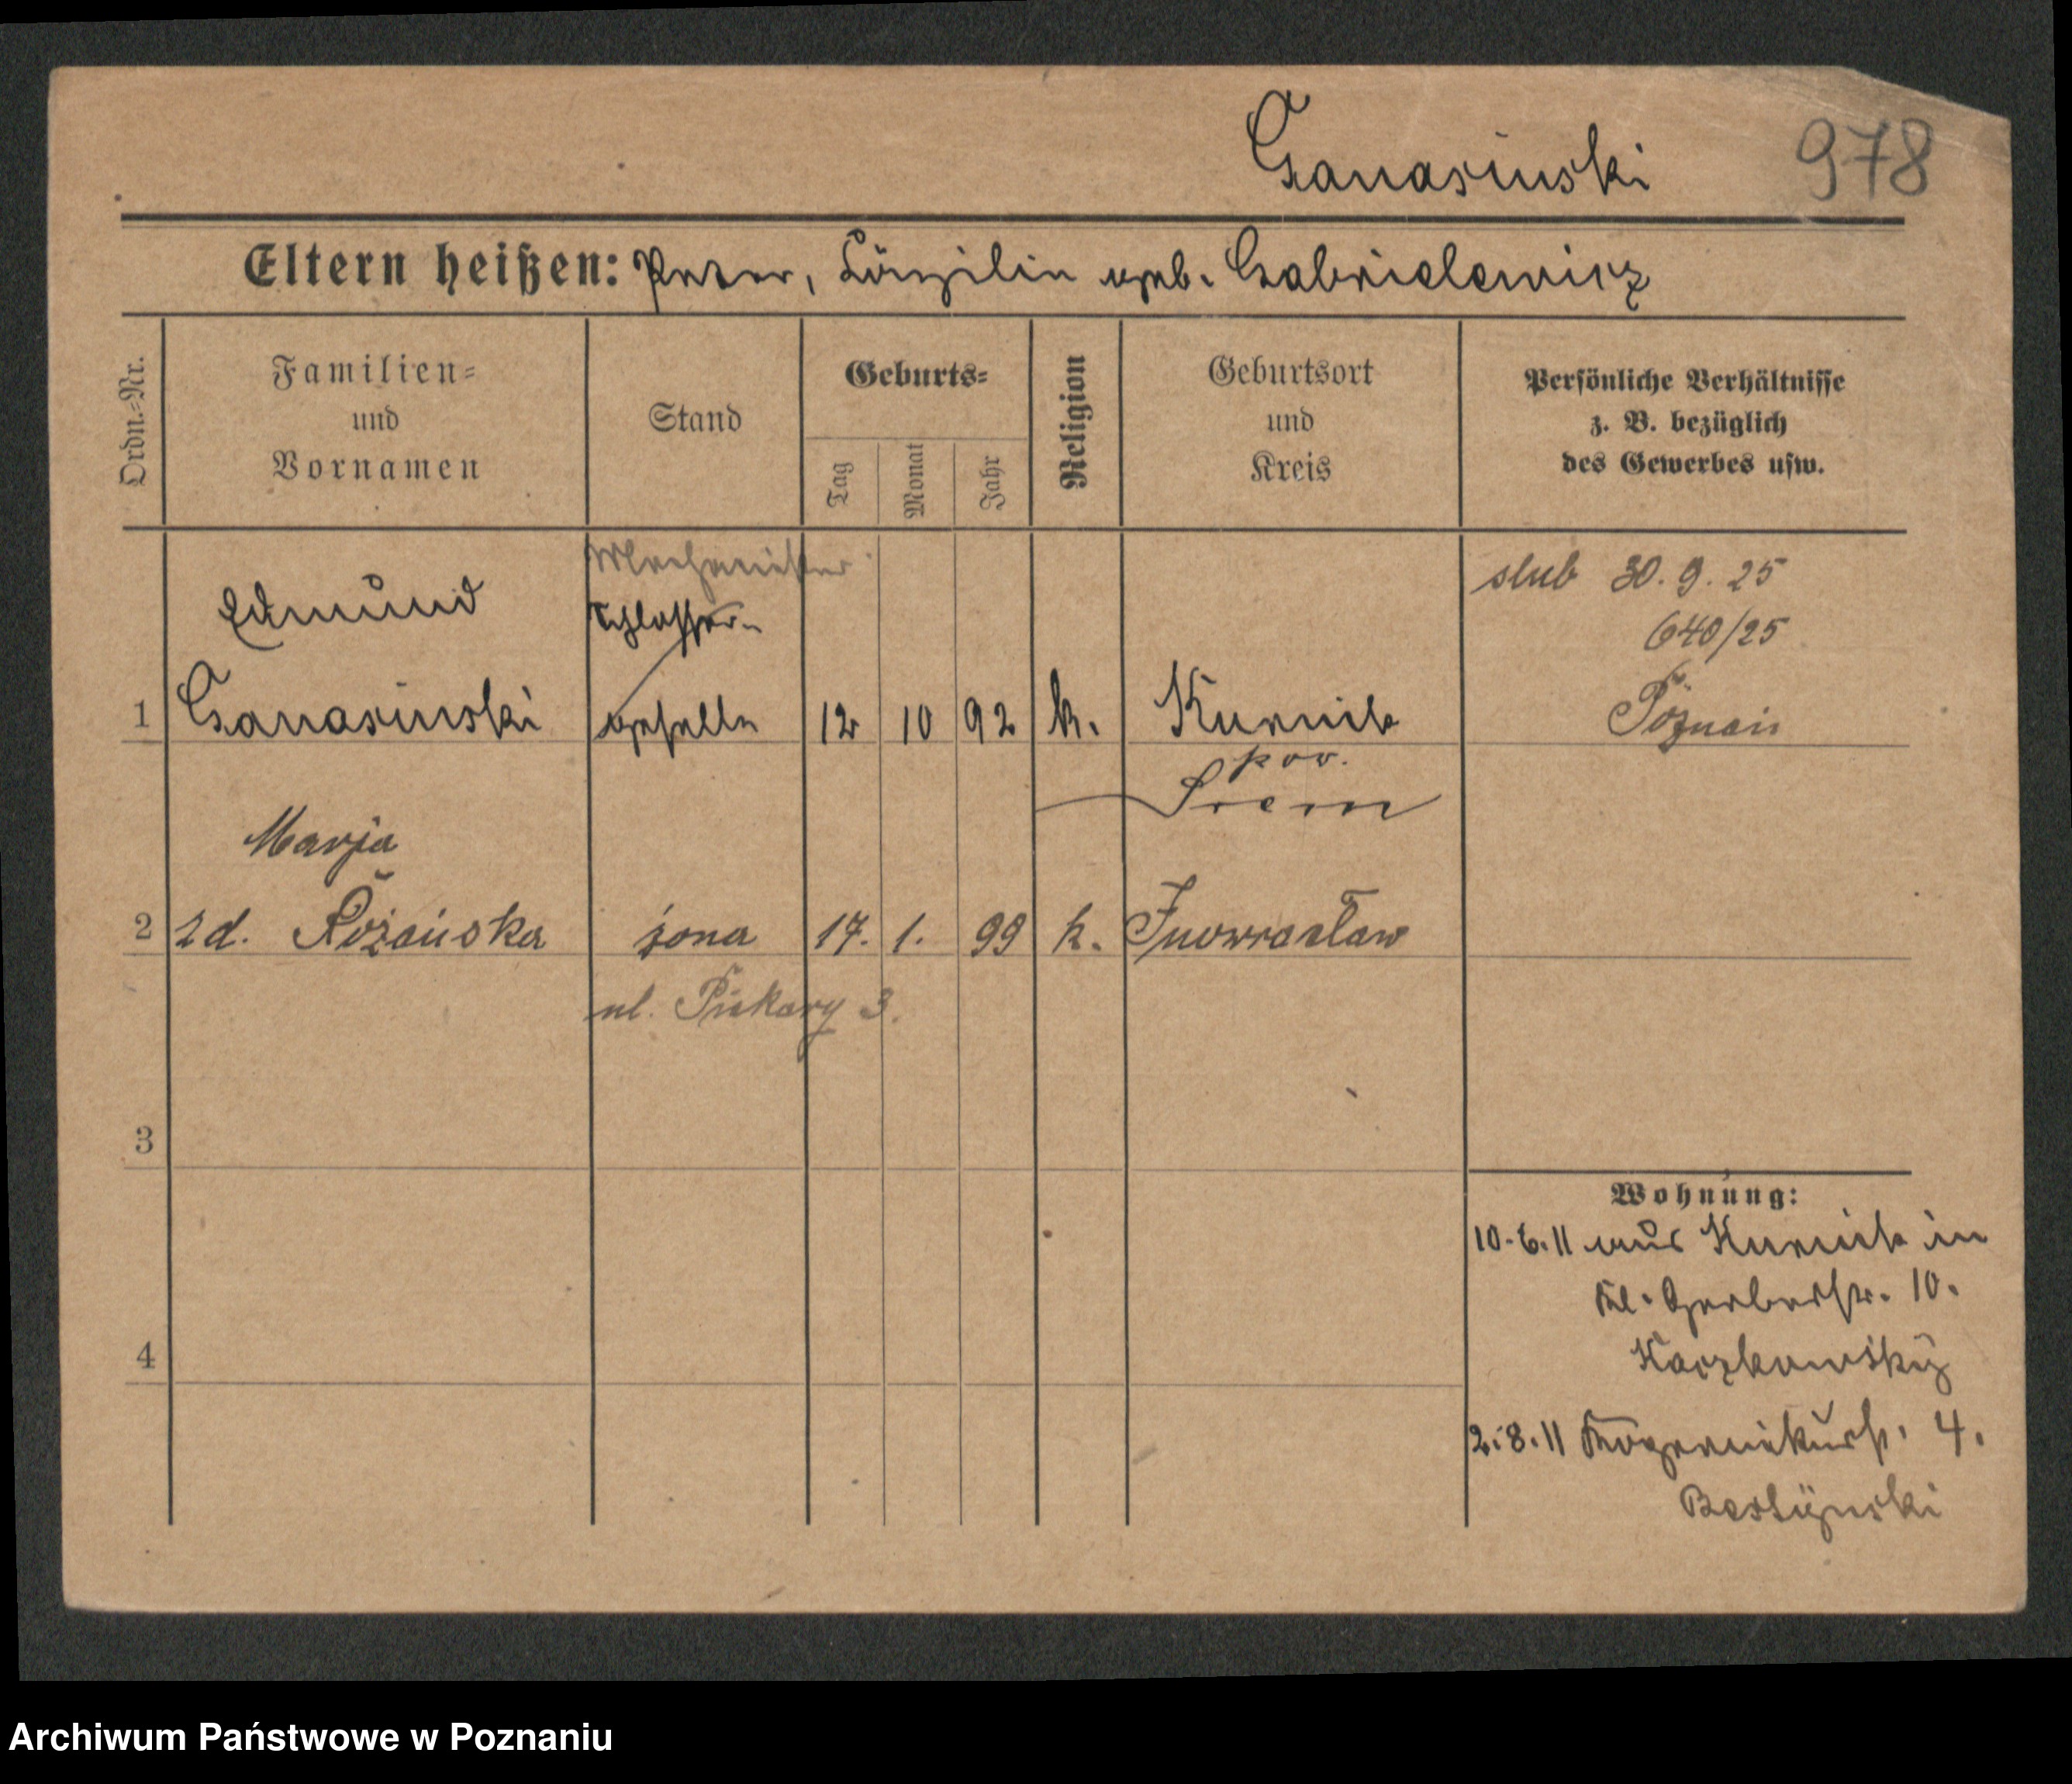 Ganasinski 978
Eltern heißen: Peter, Cäzilie geb. Gabrielewicz
Ordn.=Nr.
Familien=
und
Vornamen
Stand
Geburts=
Tag
Monat
Jahr
Religion
Geburtsort
und
Kreis
Persönliche Verhältnisse
z. B. bezüglich
des Gewerbes usw.
Edmund
Schlosser-
ślub 30. 9. 25
640/25
1 Ganasinski geselle 12 10 92 k. Kurnik Poznań
pow.
Śrem
Marja
2 zd. Różańska żona 17. 1. 99 k. Inowrocław
ul. Piekary 3.
3
Wohnung:
10.6.11 aus Kurnik in
Kl. Gerberstr. 10.
4
2.8.11 4.
Archiwum Państwowe w Poznaniu